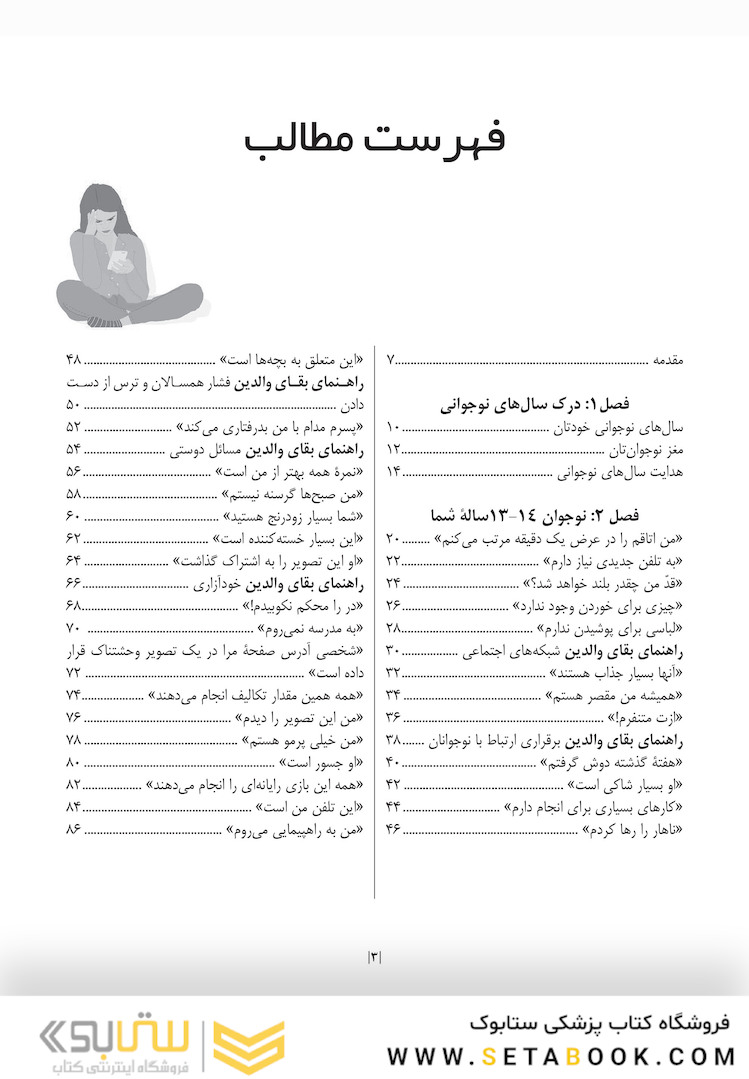 فهرست مطالب
مقدمه ........ ۷
فصل ۱: درک سال‌های نوجوانی
سال‌های نوجوانی خودتان ........ ۱۰
مغز نوجوان‌تان ........ ۱۲
هدایت سال‌های نوجوانی ........ ۱۴
فصل ۲: نوجوان ۱۴-۱۳سالهٔ شما
«من اتاقم را در عرض یک دقیقه مرتب می‌کنم» ........ ۲۰
«به تلفن جدیدی نیاز دارم» ........ ۲۲
«قدّ من چقدر بلند خواهد شد؟» ........ ۲۴
«چیزی برای خوردن وجود ندارد» ........ ۲۶
«لباسی برای پوشیدن ندارم» ........ ۲۸
راهنمای بقای والدین شبکه‌های اجتماعی ........ ۳۰
«آنها بسیار جذاب هستند» ........ ۳۲
«همیشه من مقصر هستم» ........ ۳۴
«ازت متنفرم!» ........ ۳۶
راهنمای بقای والدین برقراری ارتباط با نوجوانان ........ ۳۸
«هفتهٔ گذشته دوش گرفتم» ........ ۴۰
«او بسیار شاکی است» ........ ۴۲
«کارهای بسیاری برای انجام دارم» ........ ۴۴
«ناهار را رها کردم» ........ ۴۶
«این متعلق به بچه‌ها است» ........ ۴۸
راهنمای بقای والدین فشار همسالان و ترس از دست
دادن ........ ۵۰
«پسرم مدام با من بدرفتاری می‌کند» ........ ۵۲
راهنمای بقای والدین مسائل دوستی ........ ۵۴
«نمرهٔ همه بهتر از من است» ........ ۵۶
«من صبح‌ها گرسنه نیستم» ........ ۵۸
«شما بسیار زودرنج هستید» ........ ۶۰
«این بسیار خسته‌کننده است» ........ ۶۲
«او این تصویر را به اشتراک گذاشت» ........ ۶۴
راهنمای بقای والدین خودآزاری ........ ۶۶
«در را محکم نکوبیدم!» ........ ۶۸
«به مدرسه نمی‌روم» ........ ۷۰
«شخصی آدرس صفحهٔ مرا در یک تصویر وحشتناک قرار
داده است» ........ ۷۲
«همه همین مقدار تکالیف انجام می‌دهند» ........ ۷۴
«من این تصویر را دیدم» ........ ۷۶
«من خیلی پرمو هستم» ........ ۷۸
«او جسور است» ........ ۸۰
«همه این بازی رایانه‌ای را انجام می‌دهند» ........ ۸۲
«این تلفن من است» ........ ۸۴
«من به راهپیمایی می‌روم» ........ ۸۶
|۳|
فروشگاه کتاب پزشکی ستابوک
WWW.SETABOOK.COM
ستابوک
فروشگاه اینترنتی کتاب